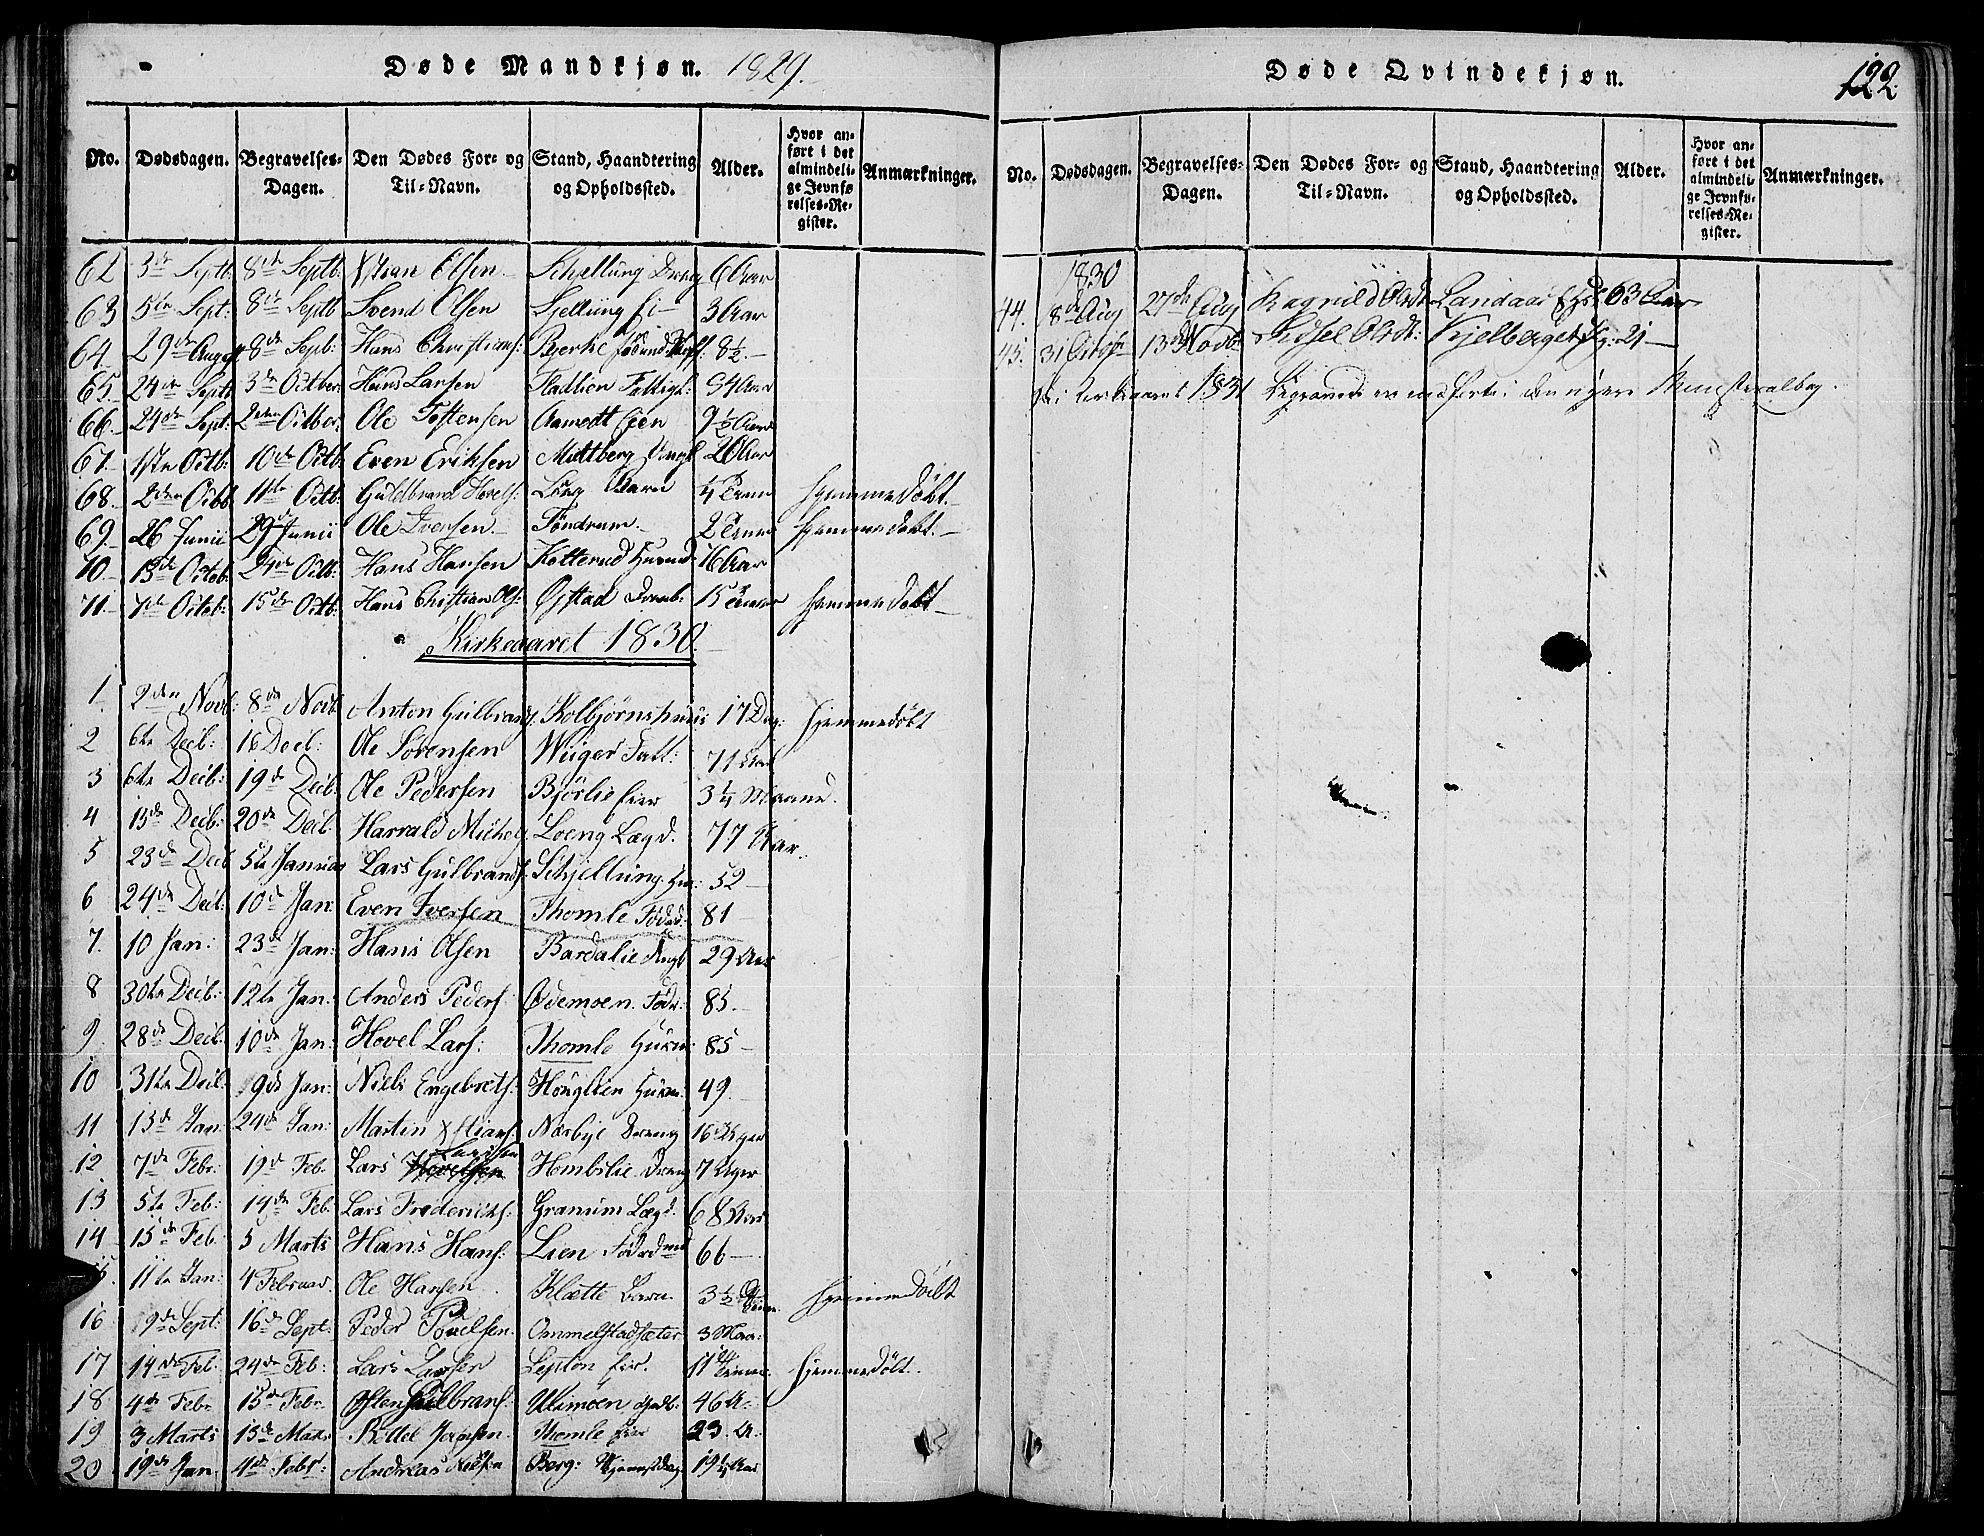 Døde Mandkjøn. 1829.
No. Dødsdagen. Begravelses-Dagen. Den Dødes For- og Til-Navn. Stand, Haandtering og Opholdssted. Alder. Hvor anført i det almindelige Jevnførelses-Register. Anmærkninger.
62 3de Septb: 8de Septb: Elsen Schjellung Dreng 6 Aar
63 5te Sept: 8de Septb Svend Olsen Sjellung Ei- 3 Aar
64. 29de August 8de Septb: Hans Christians: Bjerke 8½.-
65. 24de Septb 3de Octber Hans Larsen Stadlien 84 Aar
66. 24de Sept: 2den Octber. Ole Tostensen Aamodt Eier 9½ Aar
67. 1ste Octb: 10de Octb: Even Eriksen Midtberg 20 Aar
68. 2den Octb 11te Octb: Guldbrand Hovels: Löng Barn ¼ Time Hjemmedöbt
69. 26 Junii 29de Junii Ole Iversen Tøndrum 2 Timer Hjemmedöbt.
70. 13de Octob: 24de Octb: Hans Hansen Kotterud 16 Aar
71. 7de Octob: 15de Octb: Hans Christian Ols: Ofstad 15 Timer Hjemmedöbt
Kirkeaaret 1830.
1. 2den Novb: 8de Novb Anton Gulbrands: Kolbjørnshuus 17 Dag: Hjemmedöbt
2 6te Decb: 16 Decb: Ole Sörensen Wiiger Fatt: 71 Aar
3 6te Decb: 19de Decb: Ole Pedersen Björlie Eier 3¼ Maaned.
4 15de Decb: 20de Decb: Harrald Michels Loeng Lægd. 77 Aar.
5 23de Decb 5te Januar Lars Gulbrands: Schjellung 52-
6 24de Decb: 10de Jan: Even Iversen Thomle Föderd: 81-
7. 10 Jan: 23de Jan: Hans Olsen Bardalie Ungk 29 Aar
8 30te Decb: 12te Jan: Anders Peders: Odemoen. Födr: 85.-
9. 28de Decb. 10de Jan: Hovel Lars: Thomle 85-
10 31te Decb. 9de Jan: Niels Engebrets: Houglien 49.-
11 13de Jan: 24de Jan: Martin Nærbye Dreng 16 Uger
12 7de Febr: 19de Feb. Lars Larssen Hombslie Dreng 7 Uger
13 5te Feb: 14de Feb. Lars Frederichs: Granum Lægd. 68 Aar
14 15de Feb: 5 Marts Hans Hans: Lien 66-
11te Jan: 4 Februar Ole Hansen Klætte Barn 3½ Hjemmedöbt
16 9de Sept: 16de Sept: Peder Povelsen Ommelstadsæter 3 Maa:
17 14de Feb: 24de Feb: Lars Larsen Lepton Eier. 11 Timer Hjemmedöbt.
18 4de Feb: 15de Feb: Osten Gulbrans: Ulimoen 46 A:
19 3 Marts 15de Marts Bottel Jensen Thomle Eier 23. A.
20. 19de Jan 4de Febr: Andreas Nielsen Berg: 19¼ Aar
Døde Qvindekjøn. 122.
No. Dødsdagen. Begravelses-Dagen. Den Dødes For- og Til-Navn. Stand, Haandtering og Opholdssted. Alder. Hvor anført i det almindelige Jevnførelses-Register. Anmærkninger.
1830
44. 8de Aug 27de Aug Ragnild Olsdt. Landaas 63 Aar
45. 31 Octbr 13de Novb: Sidsel Olsdt: Kjelberget 21-
De i Kirkeaaret 1831 Begravede ere indførte i den nyere Ministerialbog.